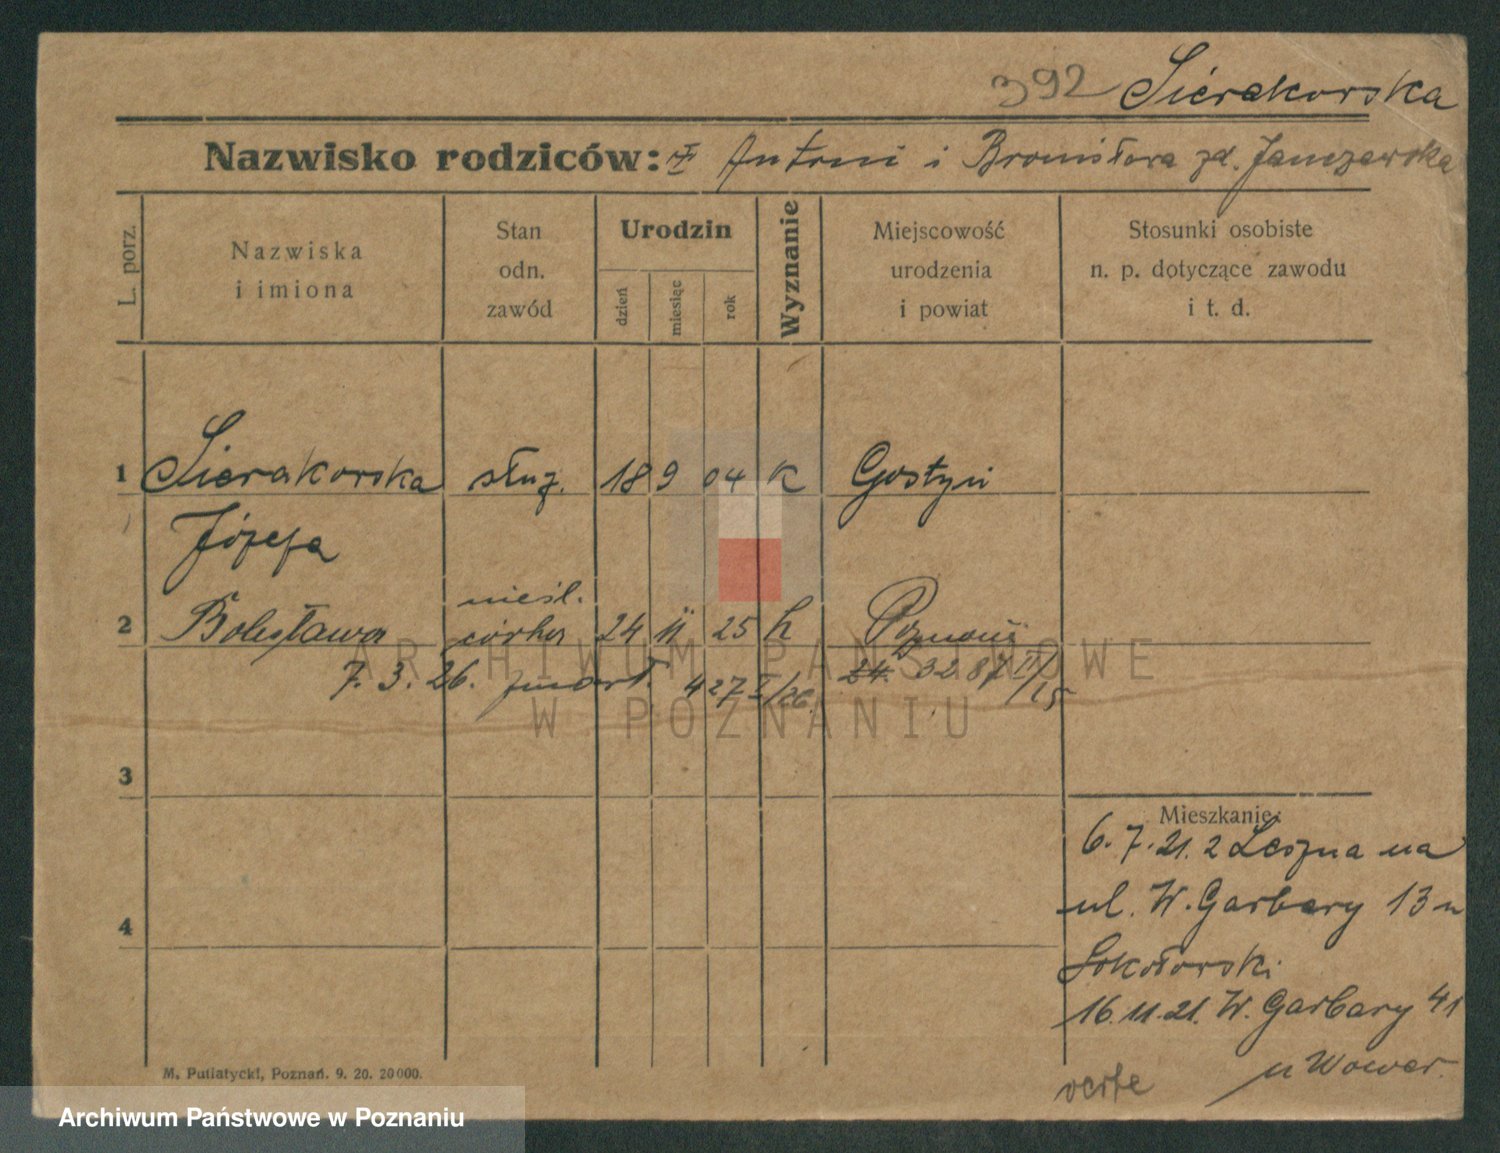 392 Sierakowska
Nazwisko rodziców: Antoni i Bronisława zd. Janczewska
L. porz.
Nazwiska
i imiona
Stan
odn.
zawód
Urodzin
dzień
miesiąc
rok
Wyznanie
Miejscowość
urodzenia
i powiat
Stosunki osobiste
n. p. dotyczące zawodu
i t. d.
1 Sierakowska służ. 18 9 04 K Gostyń
Józefa
nieśl.
2 Bolesława córka 24 11 25 k Poznań
7. 3. 26. zmarł. 427 I/26. 24. 3287 II/25
3
4
Mieszkanie:
6. 7. 21. z Leszna na
ul. W. Garbary 13 u
Sokołowski
16.11.21. W. Garbary 41
u Wower.
verte
M. Putiatycki, Poznań. 9. 20. 20000.
ARCHIWUM PAŃSTWOWE
W POZNANIU
Archiwum Państwowe w Poznaniu